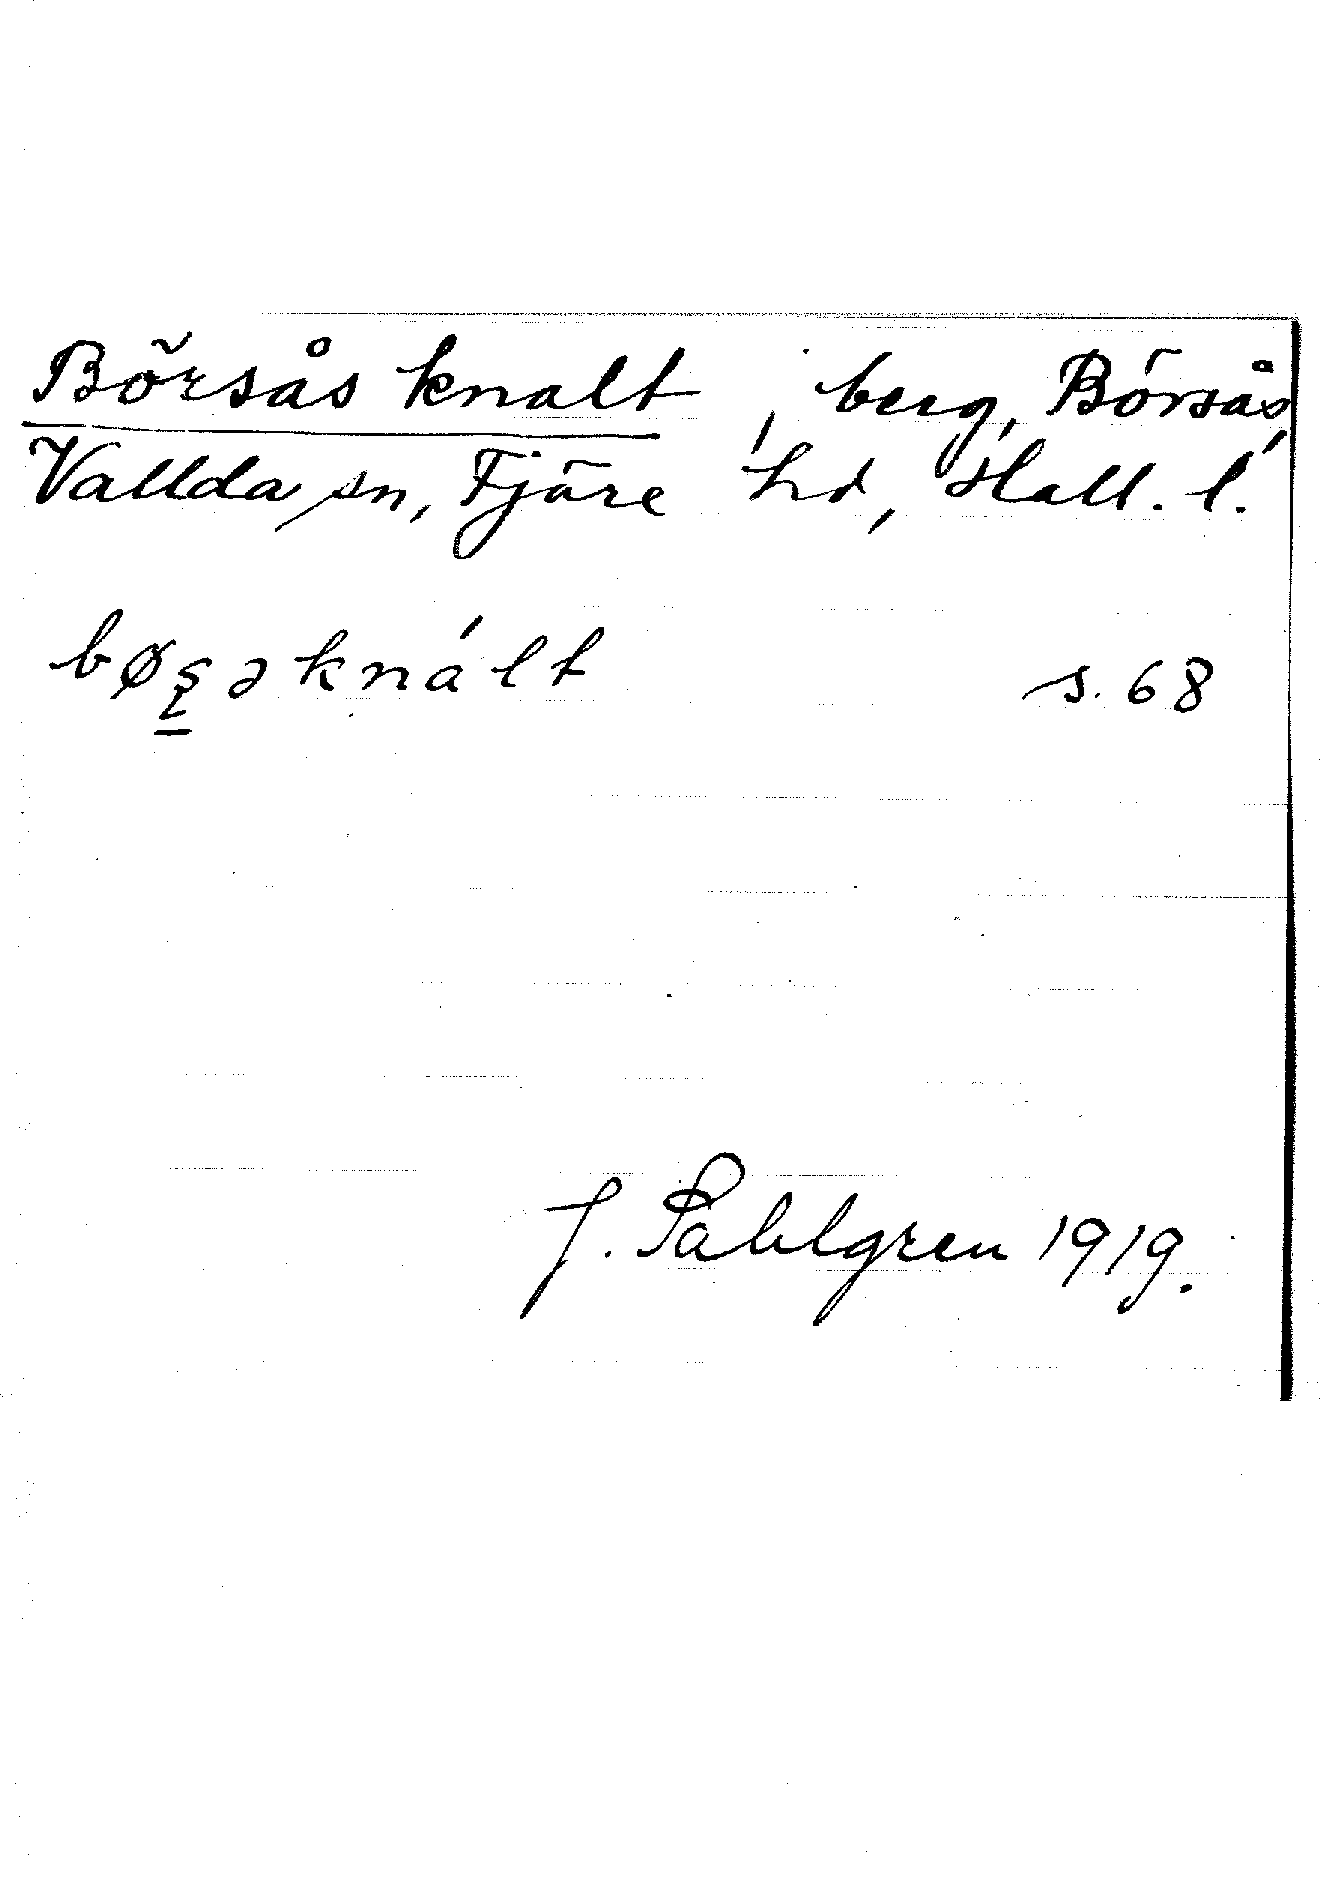 Börsås knalt, berg, Börsås,
Vallda sn, Fjäre hd, Hall. l.
bøʂəknált s. 68
J. Sahlgren 1919.